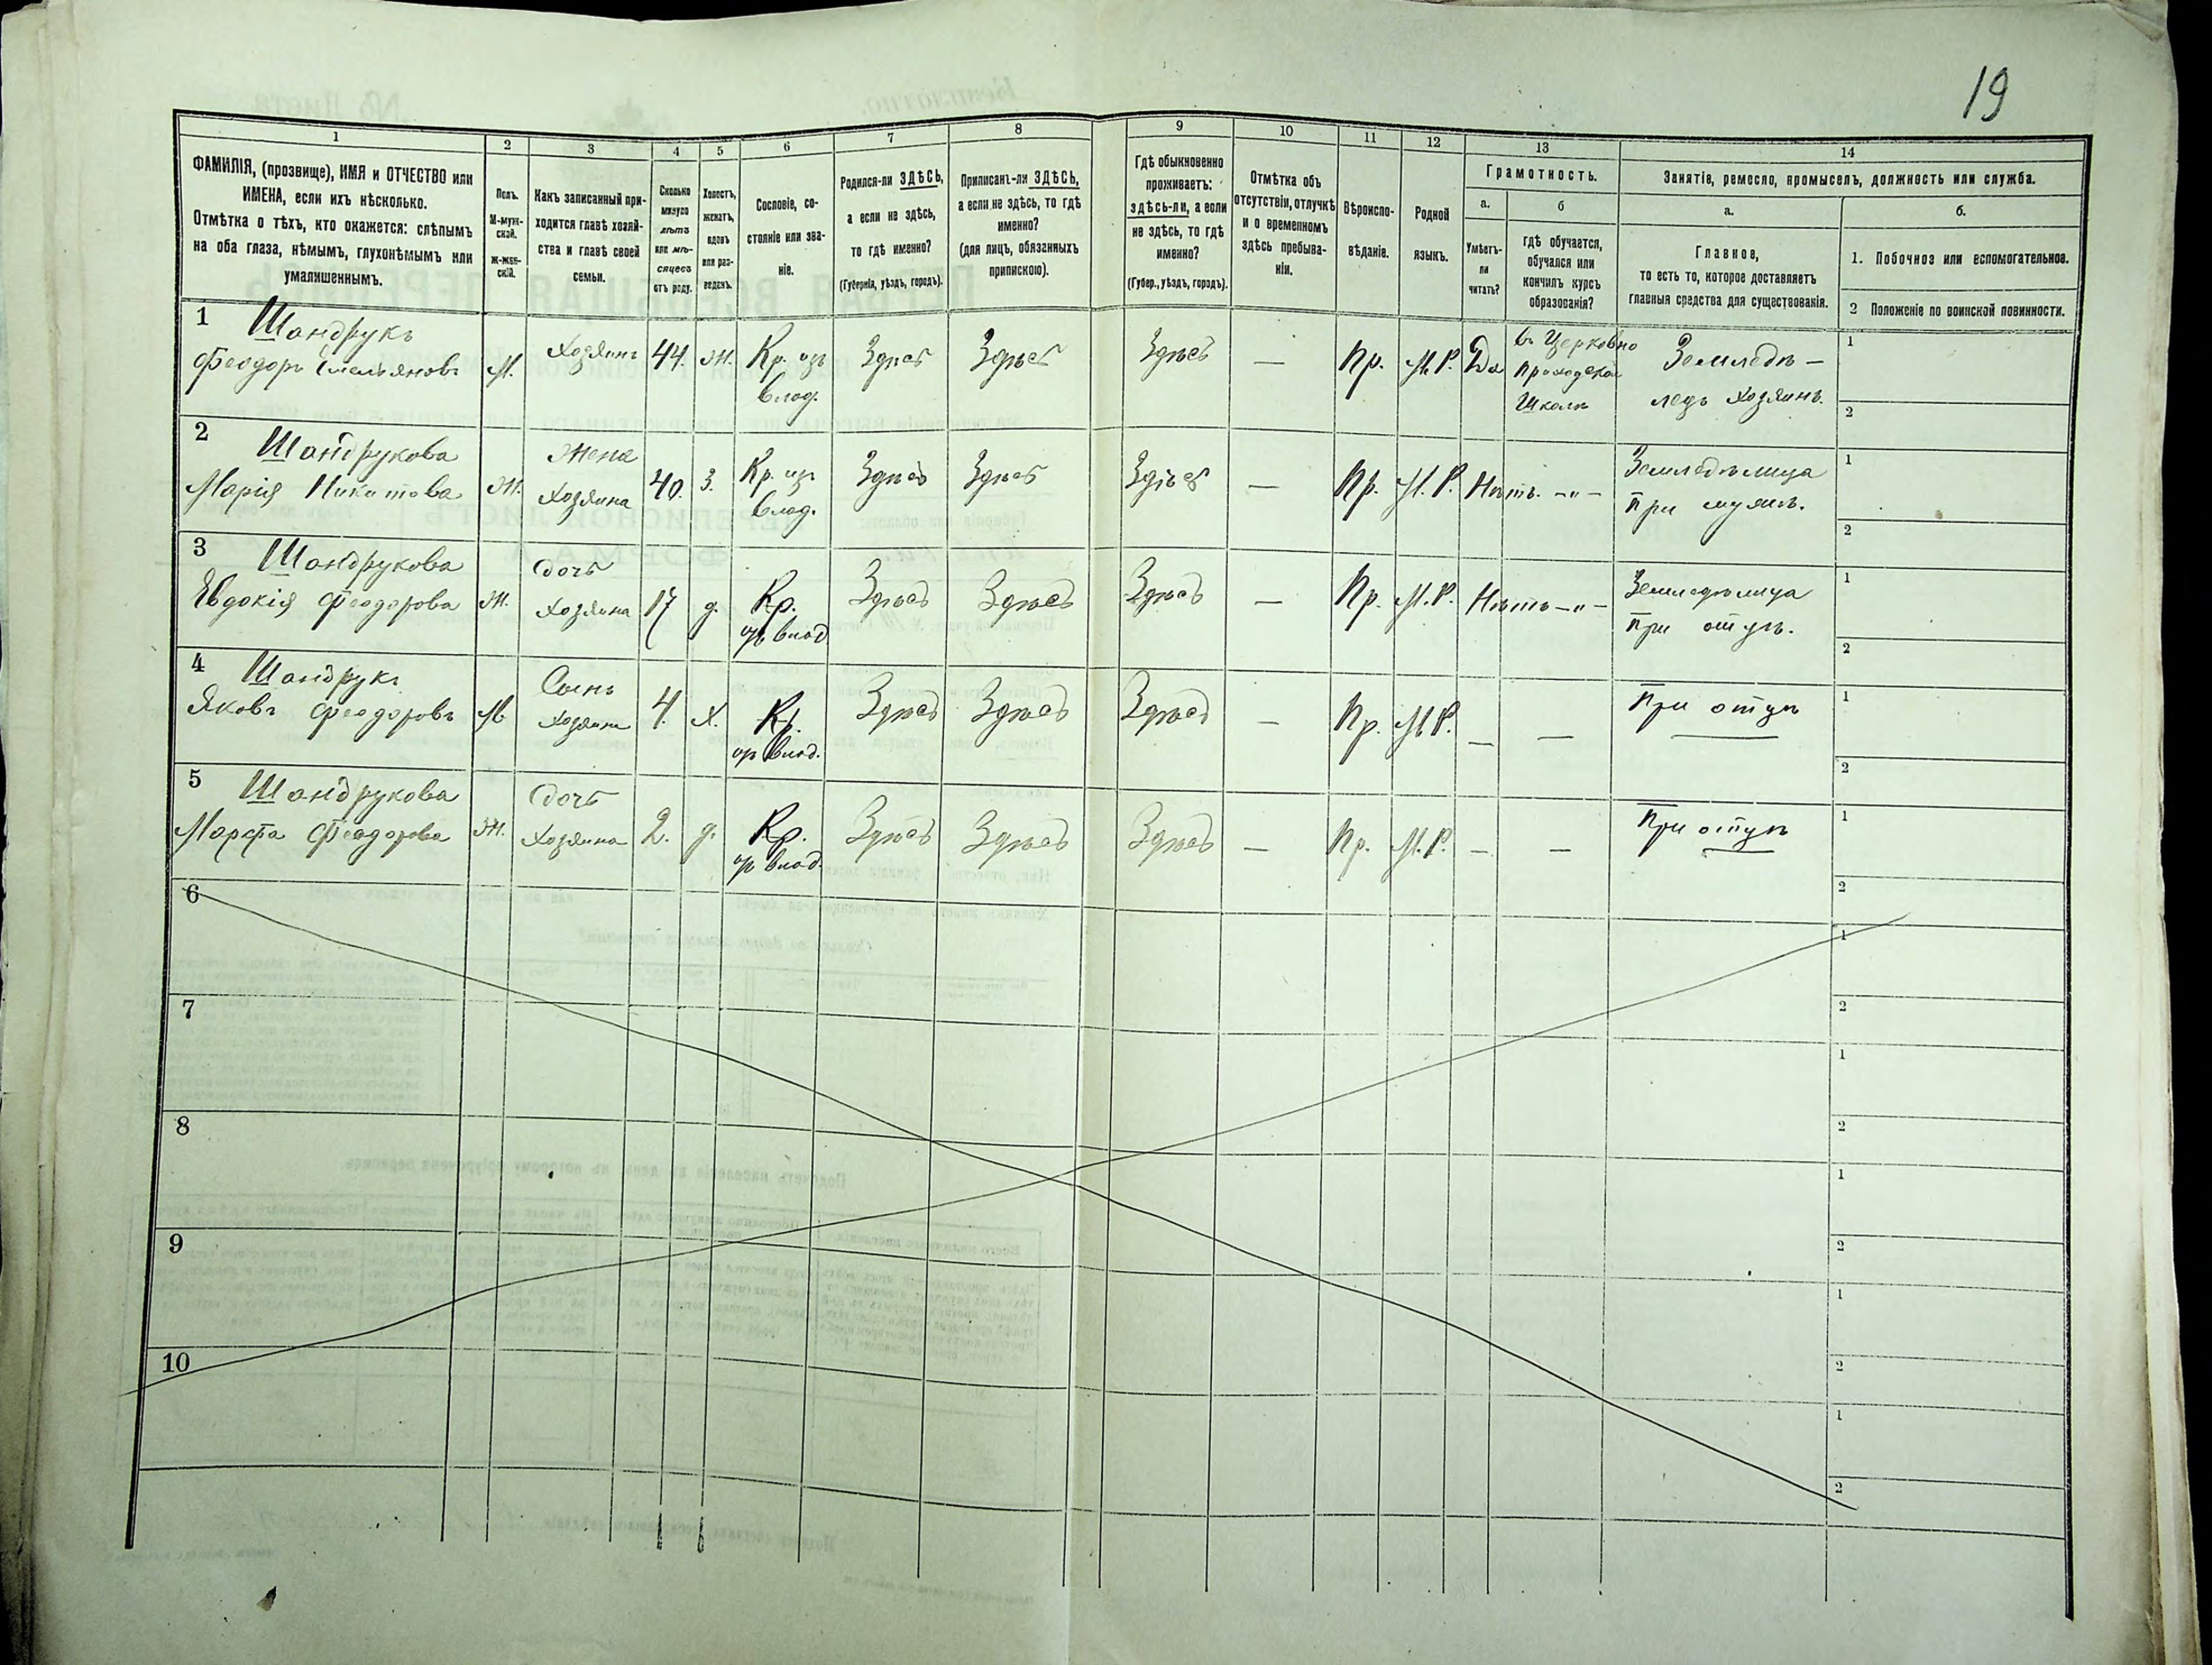 19
1
2
3
4
5
6
7
8
9
10
11
12
13
14
ФАМИЛІЯ, (прозвище), ИМЯ и ОТЧЕСТВО или
ИМЕНА, если ихъ нѣсколько.
Отмѣтка о тѣхъ, кто окажется: слѣпымъ
на оба глаза, нѣмымъ, глухонѣмымъ или
умалишеннымъ.
Полъ.
М-муж-
ской.
Ж-жен-
скій.
Какъ записанный при-
ходится главѣ хозяй-
ства и главѣ своей
семьи.
Сколько
минуло
лѣтъ
или мѣ-
сяцевъ
отъ роду.
Холостъ,
женатъ,
вдовъ
или раз-
веденъ.
Сословіе, со-
стояніе или зва-
ніе.
Родился-ли ЗДѢСЬ,
а если не здѣсь,
то гдѣ именно?
(Губернія, уѣздъ, городъ).
Приписанъ-ли ЗДѢСЬ,
а если не здѣсь, то гдѣ
именно?
(для лицъ, обязанныхъ
припискою).
Гдѣ обыкновенно
проживаетъ:
здѣсь-ли, а если
не здѣсь, то гдѣ
именно?
(Губер., уѣздъ, городъ).
Отмѣтка объ
отсутствіи, отлучкѣ
и о временномъ
здѣсь пребыва-
ніи.
Вѣроиспо-
вѣданіе.
Родной
языкъ.
Грамотность.
а.
Умѣетъ-
ли
читать?
б
гдѣ обучается,
обучался или
кончилъ курсъ
образованія?
Занятіе, ремесло, промыселъ, должность или служба.
а.
Главное,
то есть то, которое доставляетъ
главныя средства для существованія.
б.
1. Побочное или вспомогательное.
2 Положеніе по воинской повинности.
1 Шандрукъ
Феодоръ Емельяновъ
М.
Хозяинъ
44.
Ж.
Кр. изъ
влад.
Здѣсь
Здѣсь
Здѣсь
—
Пр.
М.Р.
Да
въ Церковно
Приходской
Школѣ
Землєдѣ-
лецъ хозяинъ.
1
2
2 Шандрукова
Марія Никитова
Ж.
Жена
хозяина
40.
З.
Кр. изъ
влад.
Здѣсь
Здѣсь
Здѣсь
—
Пр.
М.Р.
Нѣтъ. -„-
Земледѣлица
при мужѣ.
1
2
3 Шандрукова
Євдокія Феодорова
Ж.
дочь
Хозяина
17
д.
Кр.
изъ влад
Здѣсь
Здѣсь
Здѣсь
—
Пр.
М.Р.
Нѣтъ -„-
Земледѣлица
при отцѣ.
1
2
4 Шандрукъ
Яковъ Феодоровъ
М
Сынъ
хозяина
4.
Х.
Кр.
изъ влад.
Здѣсь
Здѣсь
Здѣсь
—
Пр.
М.Р.
—
—
При отцѣ
1
2
5 Шандрукова
Марфа Феодорова
Ж.
дочь
хозяина
2.
д.
Кр.
изъ влад.
Здѣсь
Здѣсь
Здѣсь
—
Пр.
М.Р.
—
—
При отцѣ
1
2
6
1
2
7
1
2
8
1
2
9
1
2
10
1
2